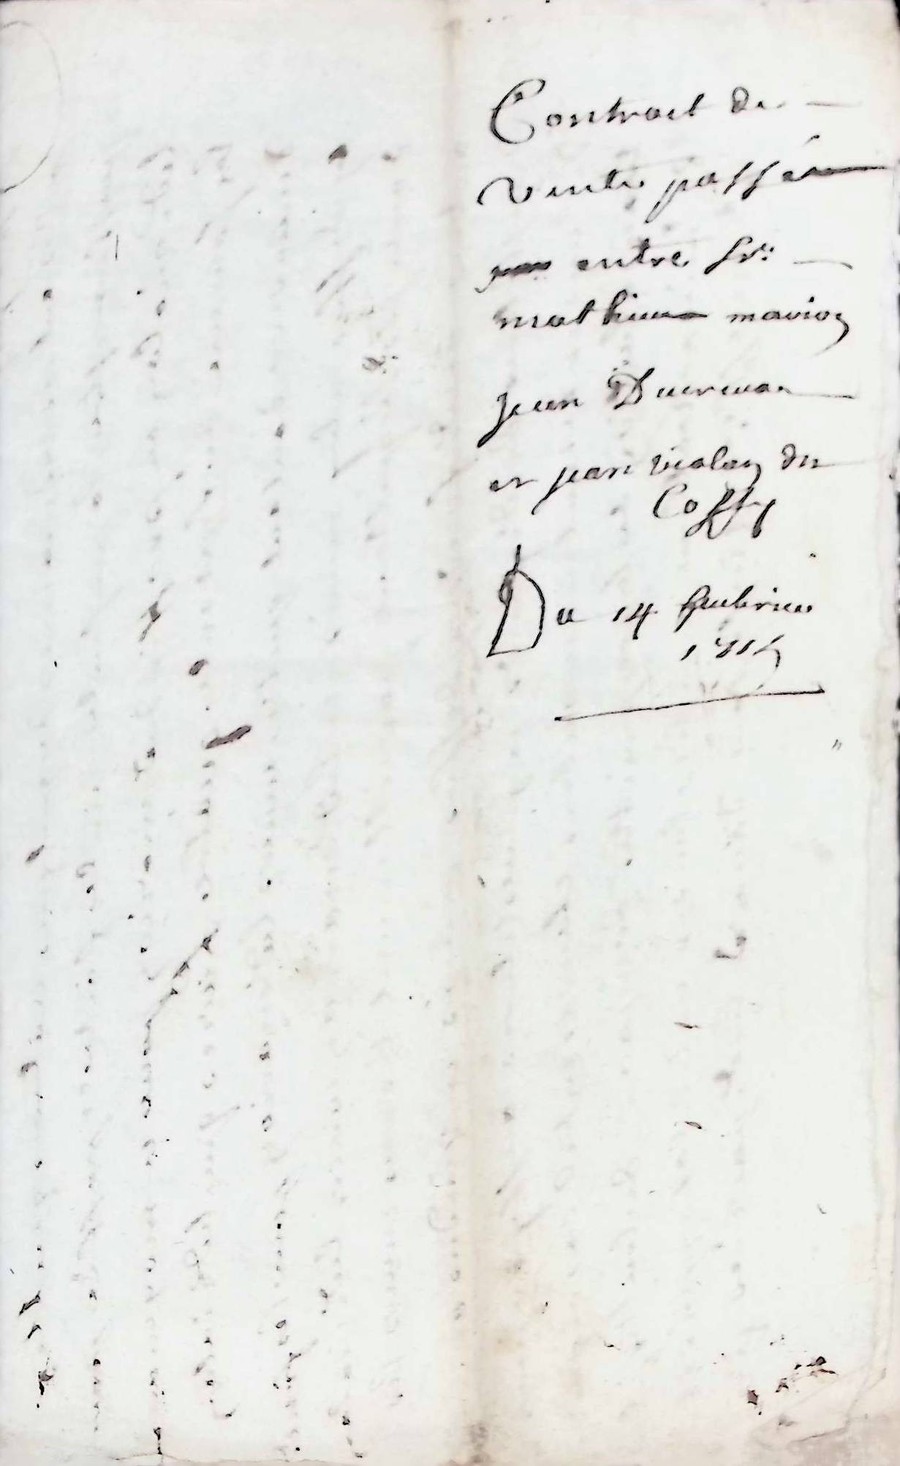 Contract de
vente passée
entre sr.
mathieu mavioz
jean Ducruax
et jean violaz du
Cossy
Du 14 feubrier
1715